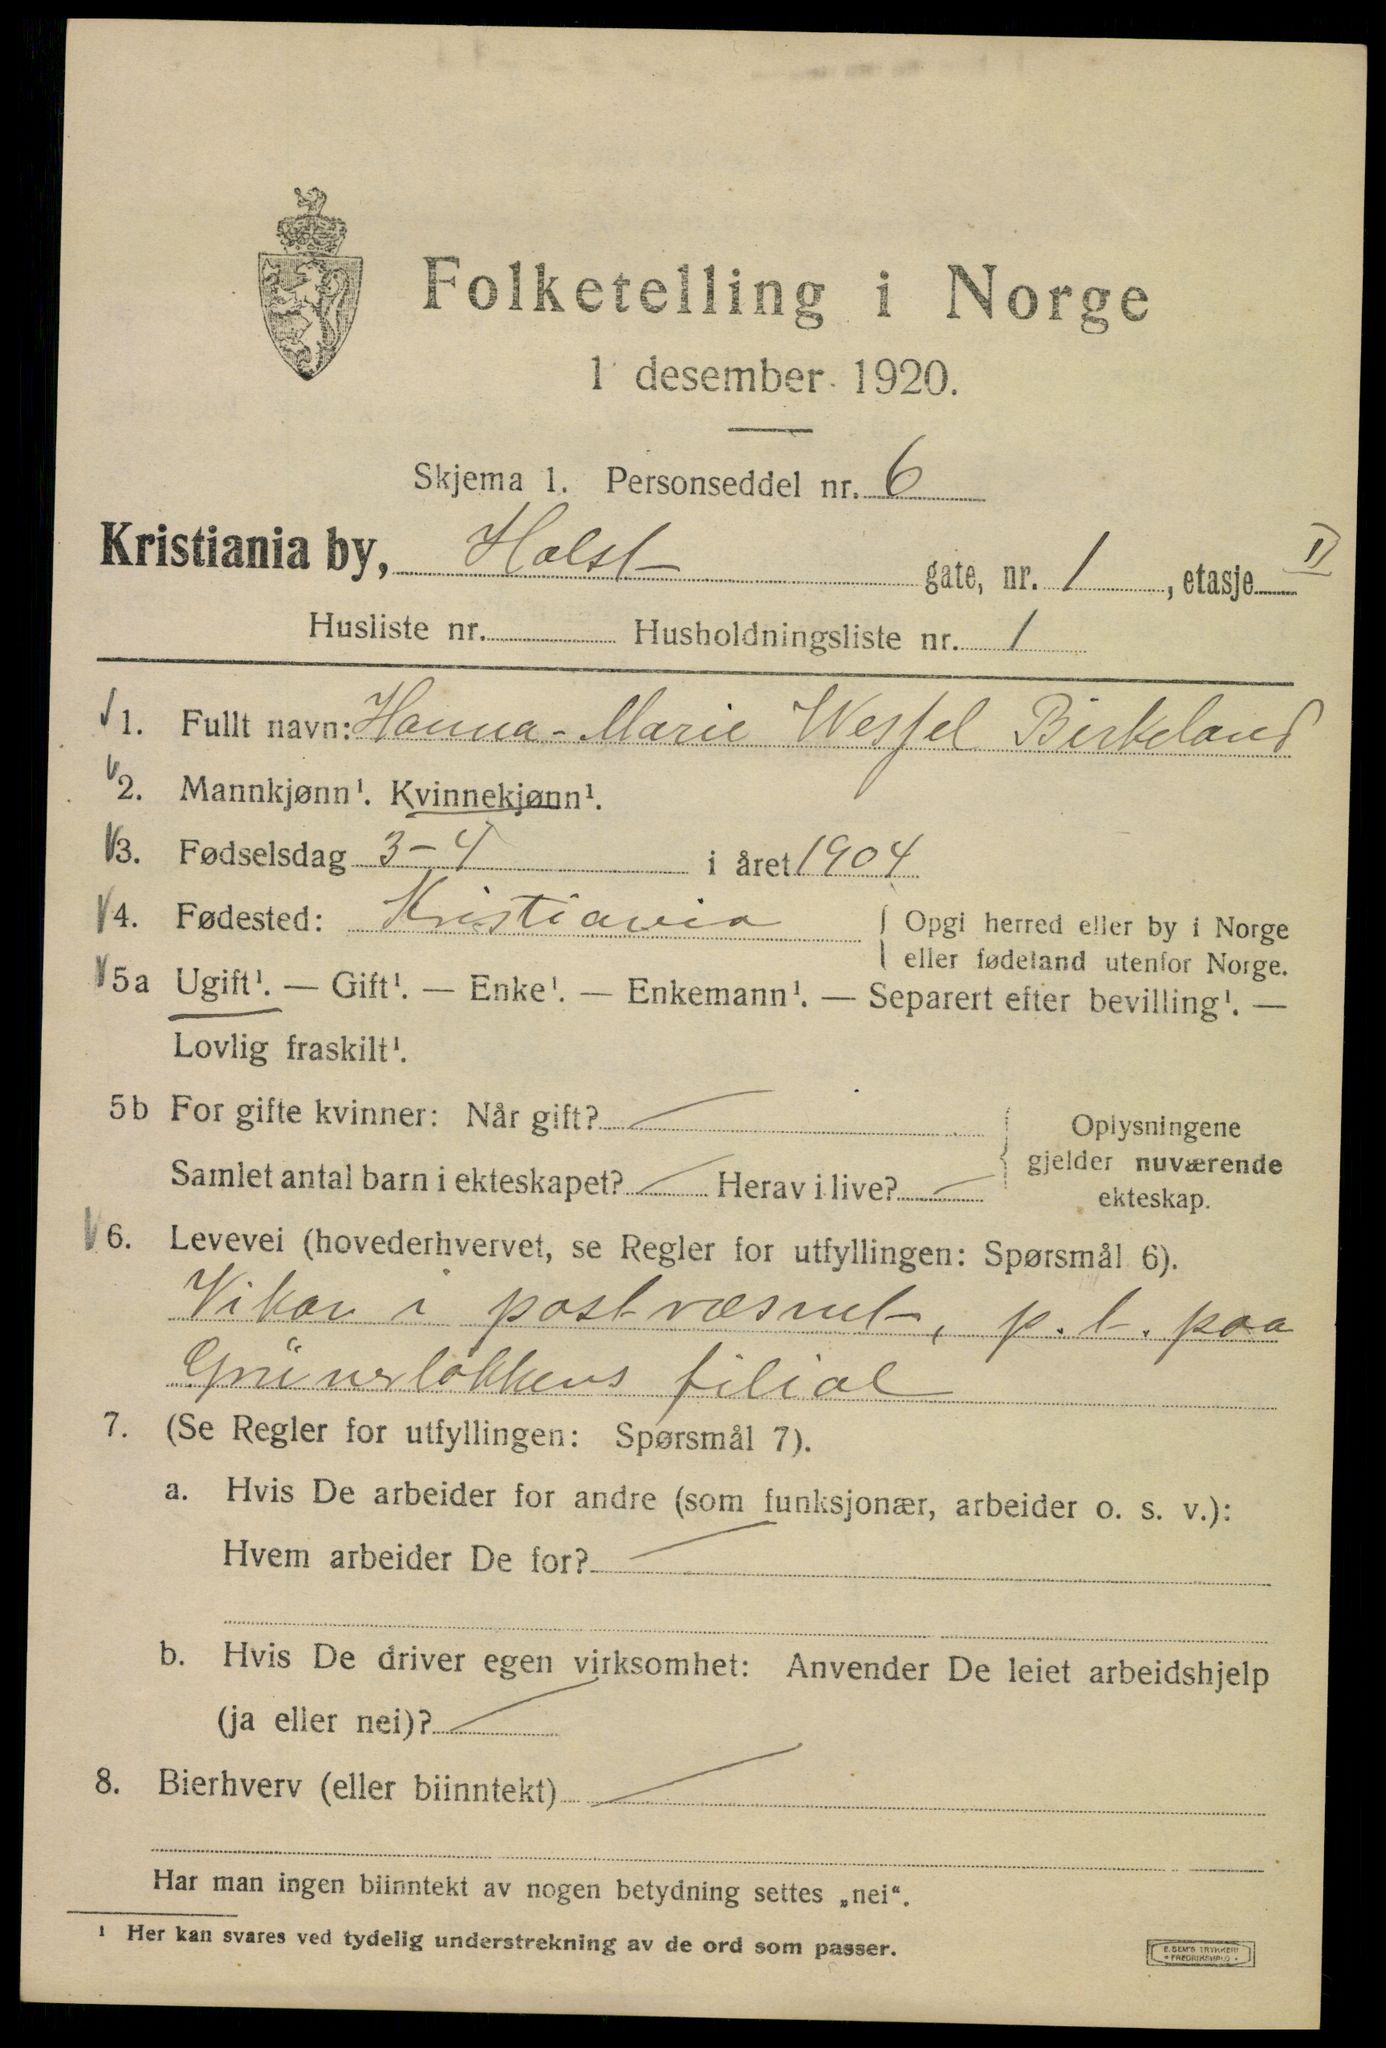 Folketelling i Norge
1 desember 1920.
Skjema 1. Personseddel nr. 6
Kristiania by, Holst gate, nr. 1, etasje II
Husliste nr. Husholdningsliste nr. 1
1. Fullt navn: Hanna-Marie Wessel Birkeland
2. Mannkjønn¹. Kvinnekjønn¹.
3. Fødselsdag 3-4 i året 1904
4. Fødested: Kristiania { Opgi herred eller by i Norge
eller fødeland utenfor Norge.
5a Ugift¹. — Gift¹. — Enke¹. — Enkemann¹. — Separert efter bevilling¹. —
Lovlig fraskilt¹.
5b For gifte kvinner: Når gift? —
Samlet antal barn i ekteskapet? — Herav i live? —
Oplysningene
gjelder nuværende
ekteskap.
6. Levevei (hovederhvervet, se Regler for utfyllingen: Spørsmål 6).
Vikar i postvæsnet, p.t. paa
Grünerløkkens filial
7. (Se Regler for utfyllingen: Spørsmål 7).
a. Hvis De arbeider for andre (som funksjonær, arbeider o. s. v.):
Hvem arbeider De for? —
b. Hvis De driver egen virksomhet: Anvender De leiet arbeidshjelp
(ja eller nei)? —
8. Bierhverv (eller biinntekt) —
Har man ingen biinntekt av nogen betydning settes „nei“.
¹ Her kan svares ved tydelig understrekning av de ord som passer.
E. SEM'S TRYKKERI
FREDRIKSHALD